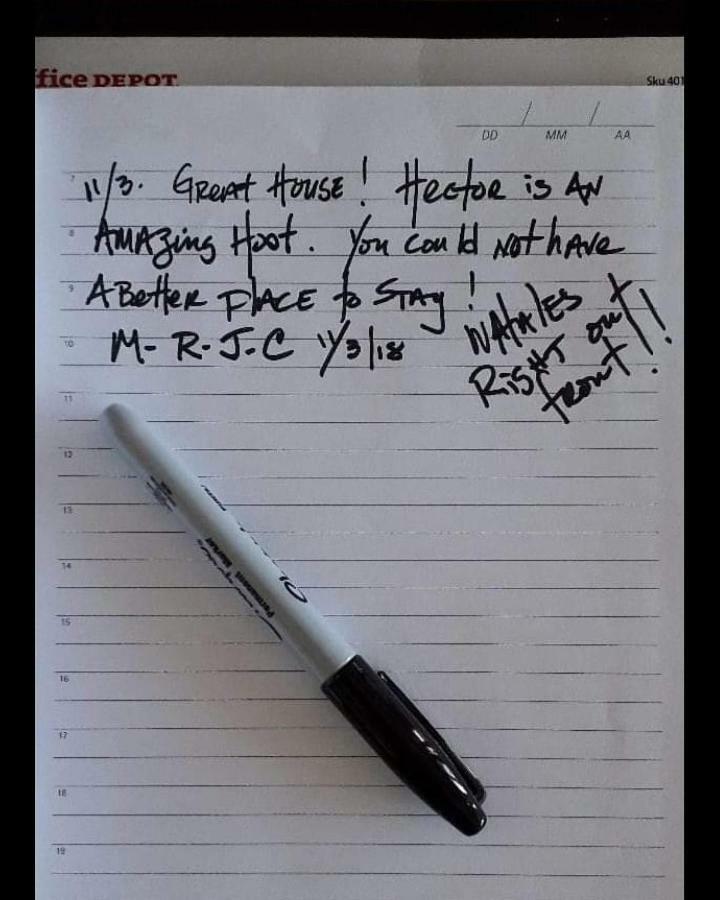 fice DEPOT
Sku 401
DD / MM / AA
7
11/3. GREAT HOUSE! HECTOR is AN
8
AMAZing Hoot. You could NOT hAVE
9
A BETTER PLACE to STAY!
10
M- R- J- C 11/3/18
NATALES
RiGHT out
front!!
11
12
13
14
15
16
17
18
19
Permanent Marker